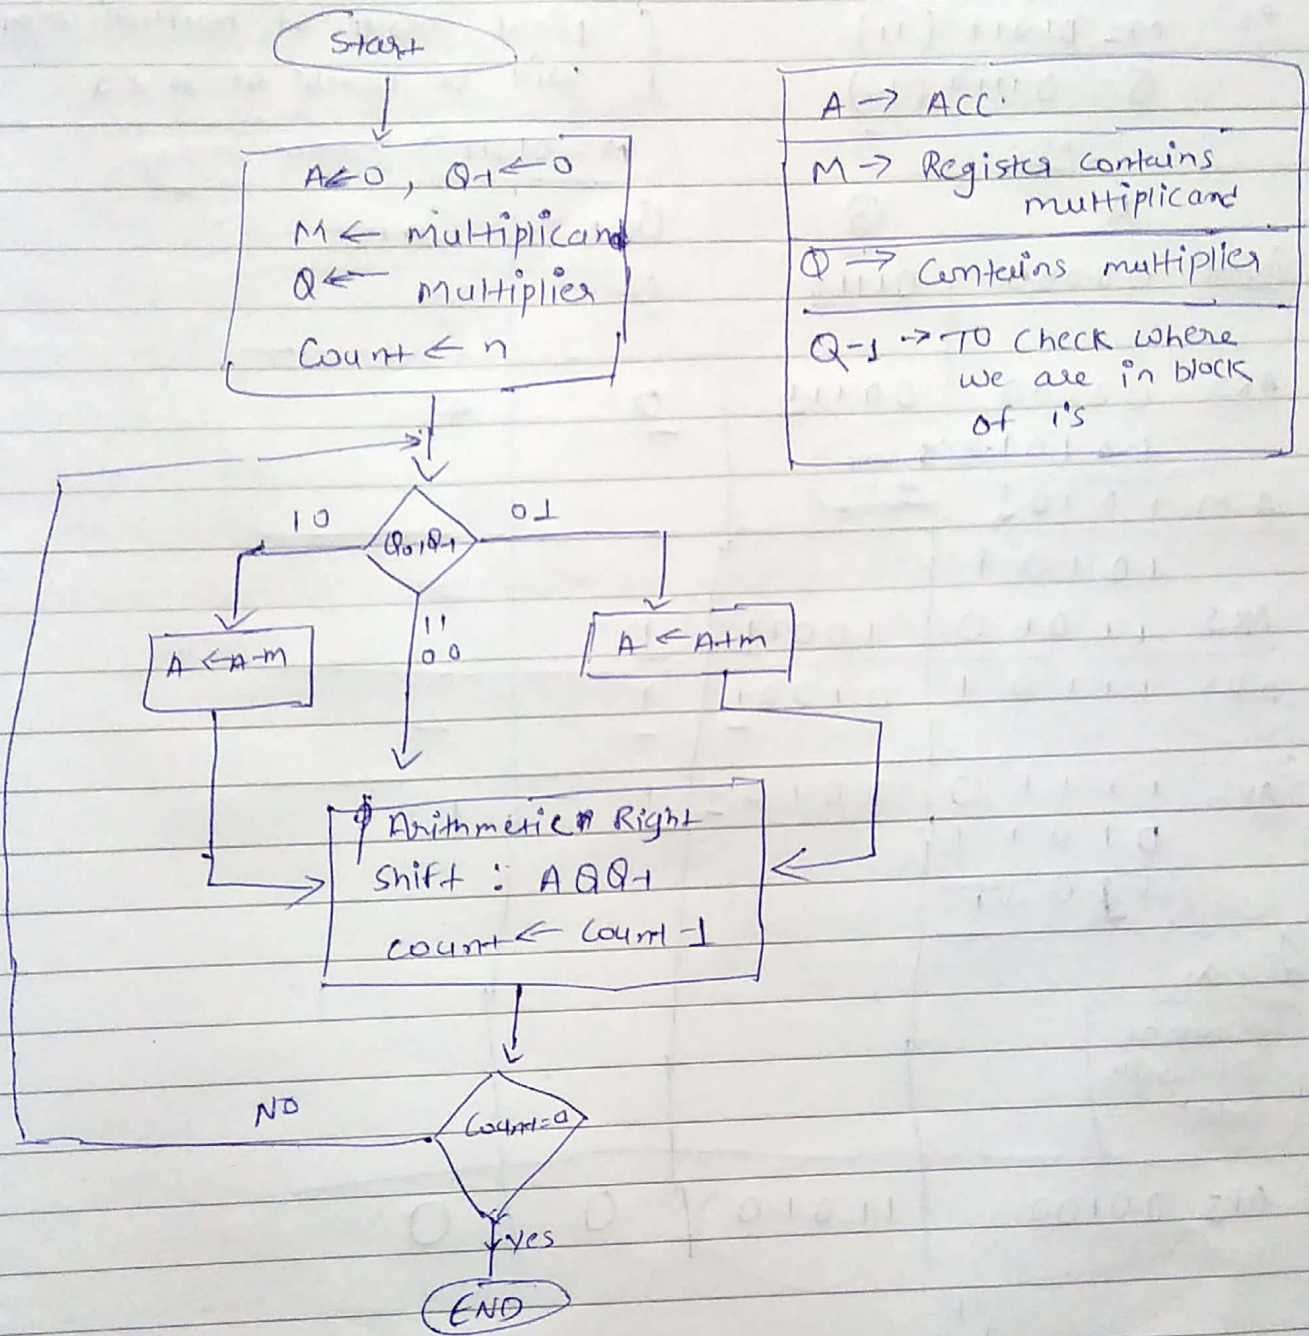 Start
A←0, Q-1←0
M← multiplicand
Q← multiplier
Count ← n
A → ACC.
M → Register contains
multiplicand
Q → Contains multiplier
Q-1 → To check where
we are in block
of 1's
10
Q0,Q-1
01
11
00
A ← A-m
A ← A+m
Arithmetic Right
shift : A Q Q-1
count ← count-1
NO
Count=0
yes
END